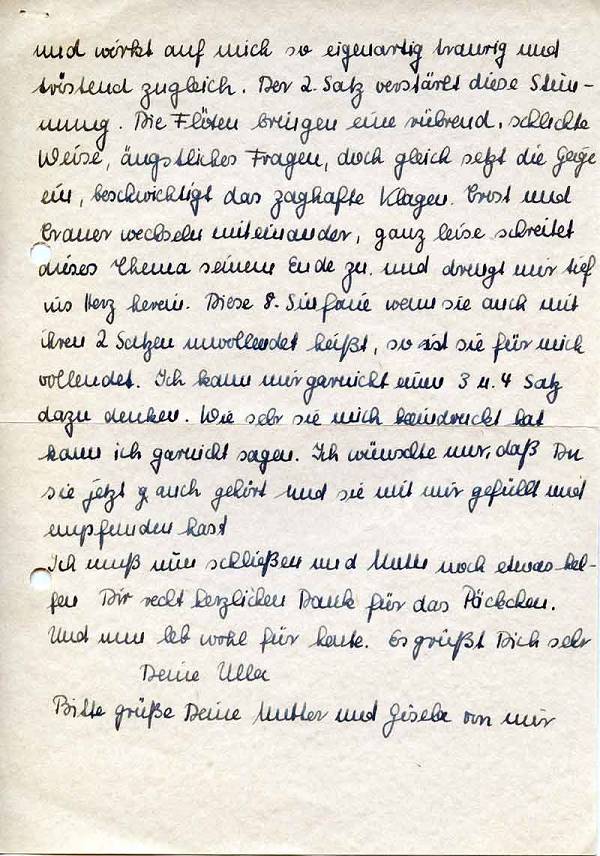 und wirkt auf mich so eigenartig traurig und
tröstend zugleich. Der 2. Satz verstärkt diese Stim-
mung. Die Flöten bringen eine rührend, schlichte
Weise, ängstliches Fragen, doch gleich setzt die Geige
ein, beschwichtigt das zaghafte Klagen. Trost und
Trauer wechseln miteinander, ganz leise schreitet
dieses Thema seinem Ende zu. und dringt mir tief
ins Herz herein. Diese 8. Sinfonie wenn sie auch mit
ihren 2 Sätzen unvollendet heißt, so ist sie für mich
vollendet. Ich kann mir garnicht einen 3 u. 4 Satz
dazu denken. Wie sehr sie mich beeindruckt hat
kann ich garnicht sagen. Ich wünschte nur, daß Du
sie jetzt auch gehört und sie mit mir gefühlt und
empfunden hast
Ich muß nun schließen und Mutti noch etwas hel-
fen Dir recht herzlichen Dank für das Päckchen.
Und nun leb wohl für heute. Es grüßt Dich sehr
Deine Ulla
Bitte grüße Deine Mutter und Gisela von mir